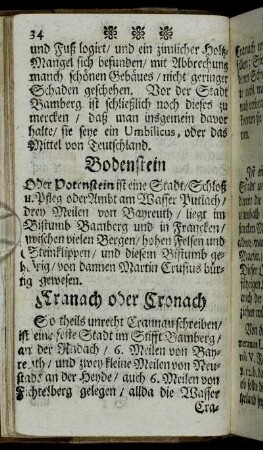 34
und Fuß logirt/ und ein zimlicher Holtz-
Mangel sich befunden/ mit Abbrechung
manch schönen Gebäues/ nicht geringer
Schaden geschehen. Vor der Stadt
Bamberg ist schließlich noch dieses zu
mercken/ daß man insgemein davor
halte/ sie seye ein Umbilicus, oder das
Mittel von Teutschland.
Bodenstein
Oder Potenstein ist eine Stadt/ Schloß
u. Pfleg oder Ambt am Wasser Putlach/
drey Meilen von Bayreuth/ liegt im
Bistumb Bamberg und in Francken/
zwischen vielen Bergen/ hohen Felsen und
Steinklippen/ und diesem Bistumb ge-
hörig/ von dannen Martin Crusius bür-
tig gewesen.
Kranach oder Cronach
So theils unrecht Crannau schreiben/
ist eine feste Stadt im Stifft Bamberg/
an der Radach/ 6. Meilen von Bay-
reuth/ und zwey kleine Meilen von Neu-
stadt an der Heyde/ auch 6. Meilen von
Fichtelberg gelegen/ allda die Wasser
Cra-